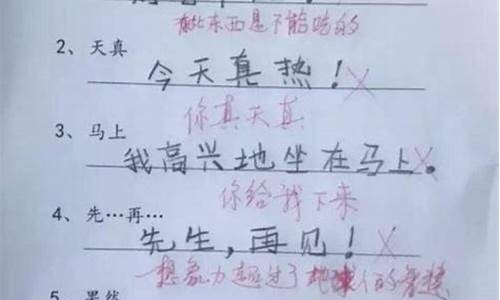 有些东西是不能吃的
2、天真
今天真热！×
你真天真
3、马上
我高兴地坐在马上。×
你给我下来
4、先…再…
先生，再见！×
想象力超过了地球人的
5、果然